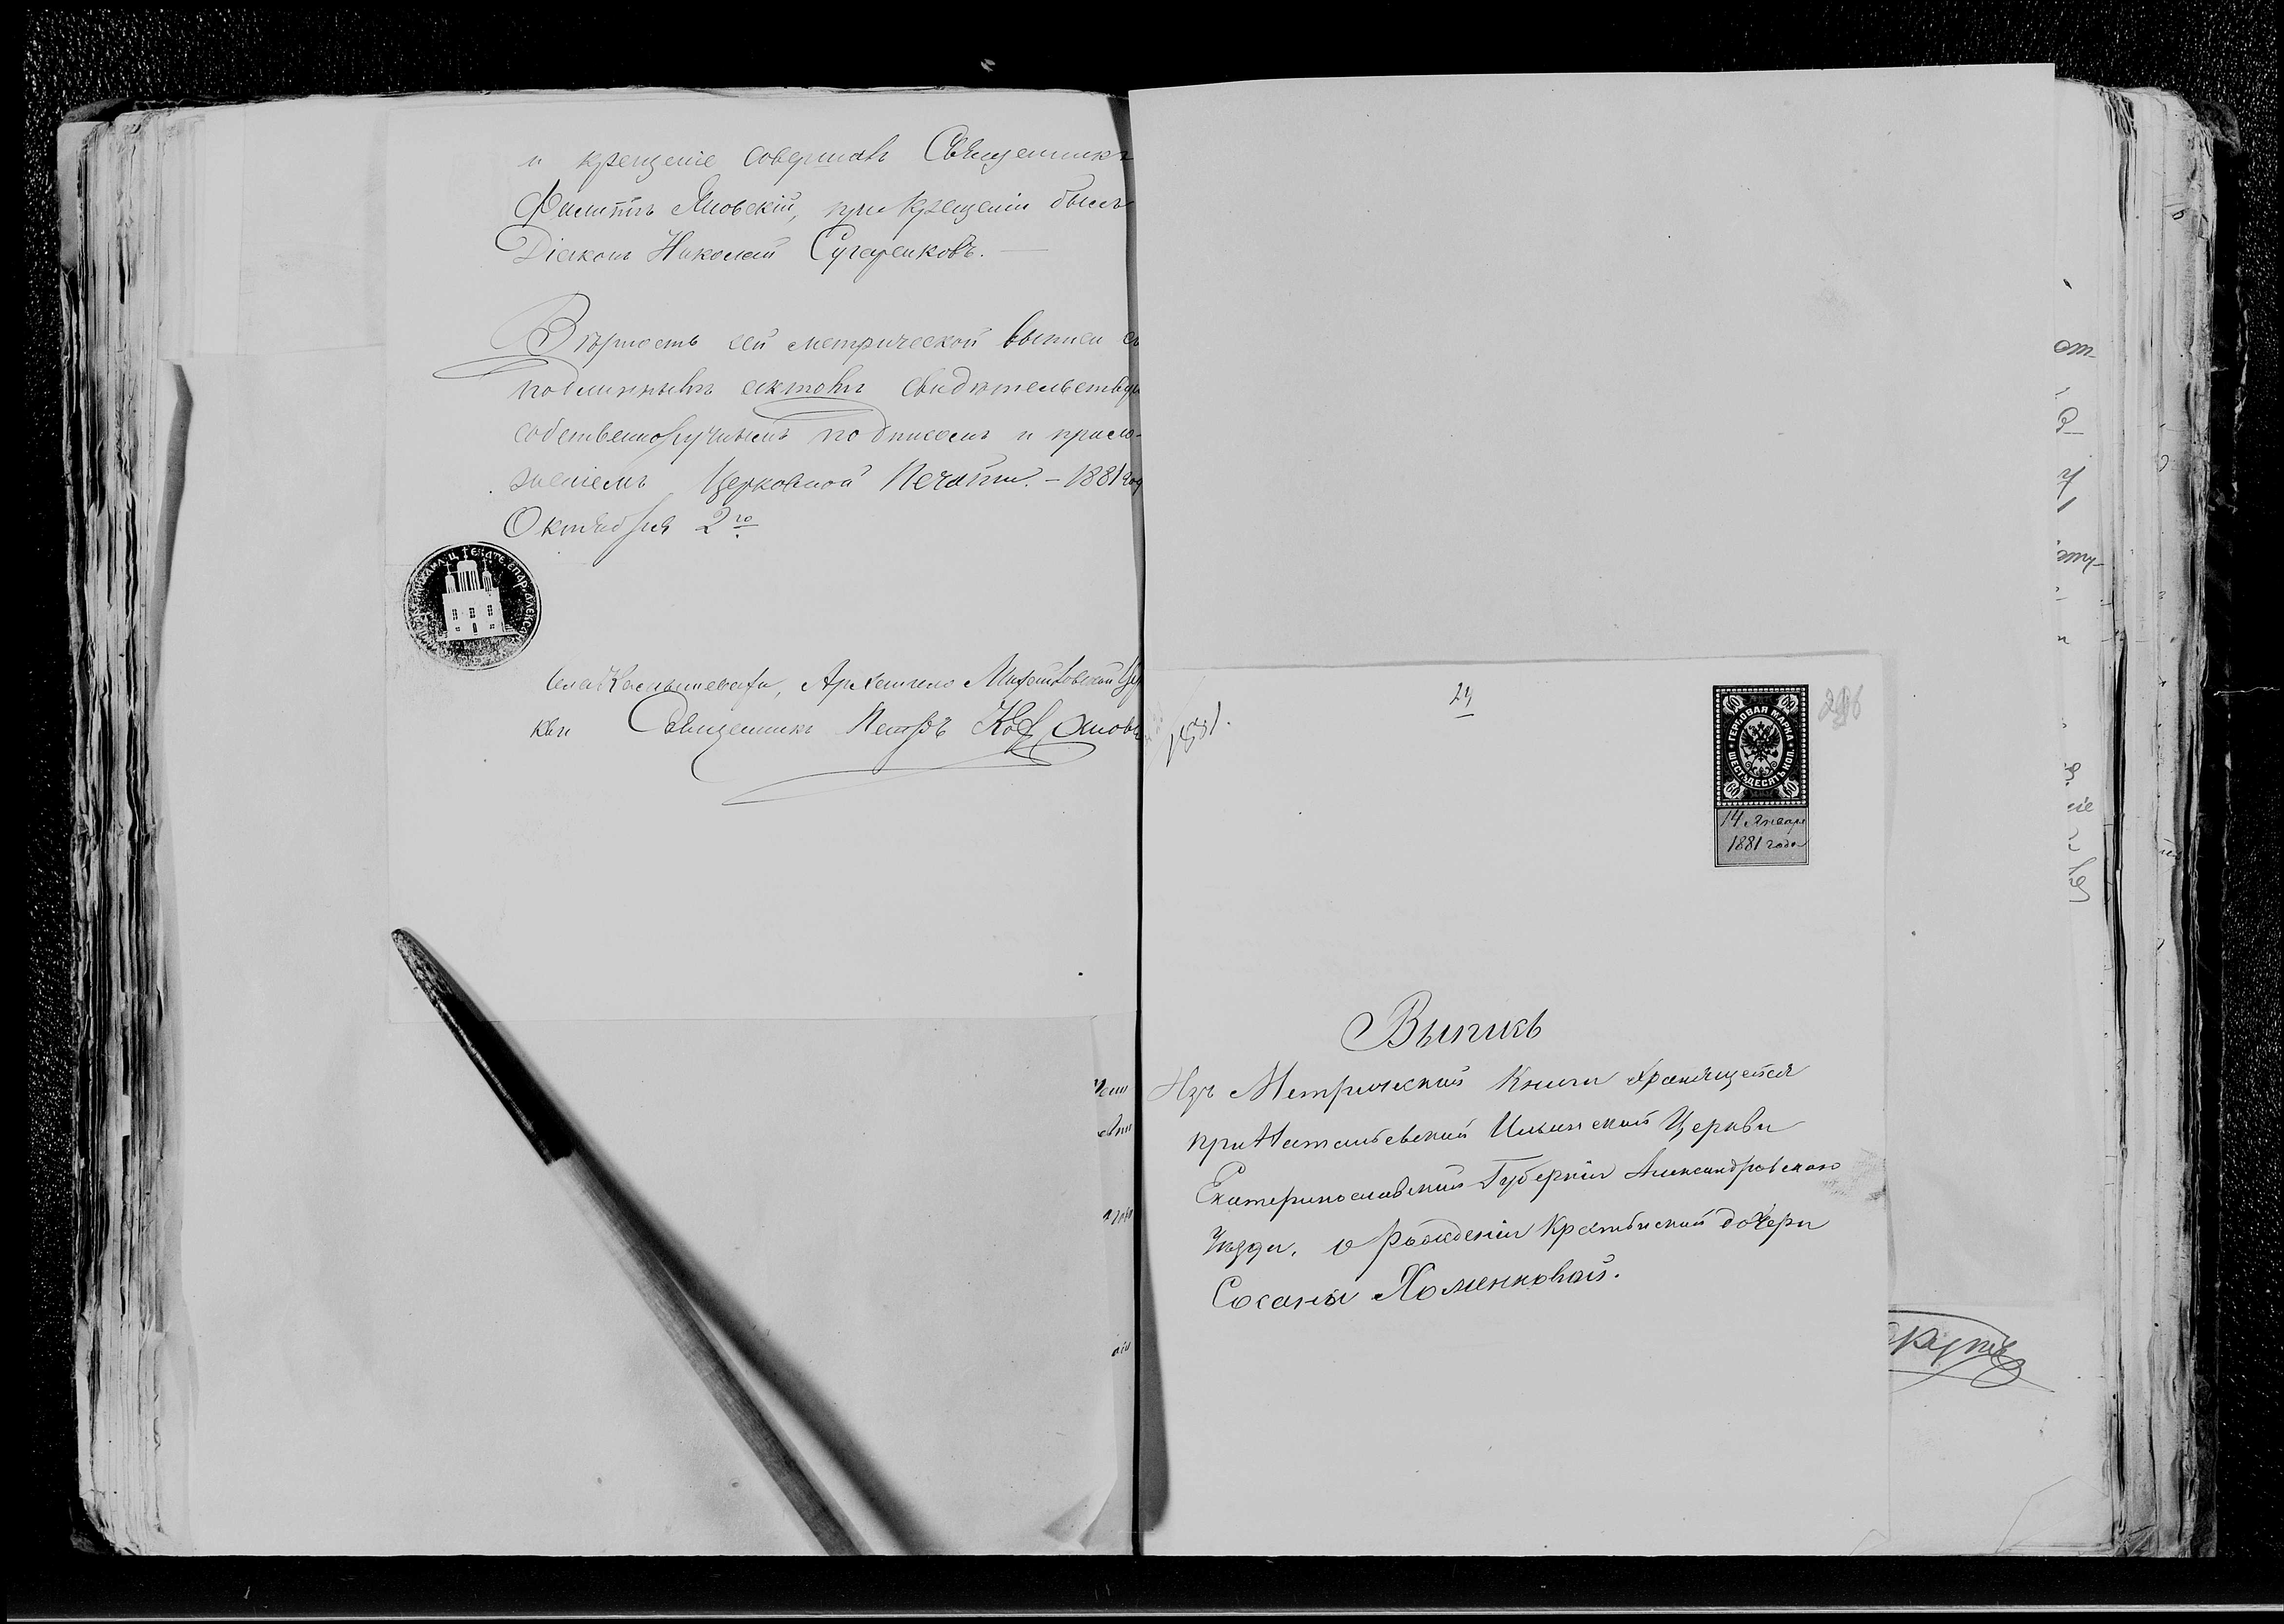 и крещеніе совершалъ Священникъ
Филиппъ Яновскій, при крещеніи былъ
Діаконъ Николай
Вѣрность сей метрической выписи съ
подлиннымъ актомъ свидѣтельству
собственноручнымъ подписомъ и прило-
женіемъ Церковной Печати. – 1881 год
Октября 2го
Села Архангело Михайловской Цер
кви Священникъ Петръ
24
60 60
ГЕРБОВАЯ МАРКА
ШЕСТЬДЕСЯТЪ КОП.
60 60
14 Января
1881 года
Выпись
Изъ Метрической Книги хранящейся
при Натальевской Ильинской Церкви
Екатеринославской Губерніи Александровскаго
Уѣзда, о рожденіи Крестьянской дочери
Сосаны Хоменковой.